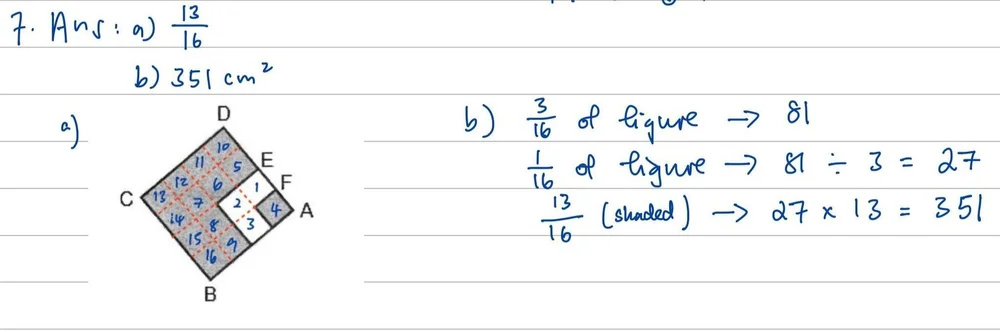 7. Ans: a) 13/16
b) 351 cm²
a)
b) 3/16 of figure → 81
1/16 of figure → 81 ÷ 3 = 27
13/16 (shaded) → 27 × 13 = 351
D
10
11 5 E
12 6 1 F
C 13 7 2 4 A
14 8 3
15 9
16
B